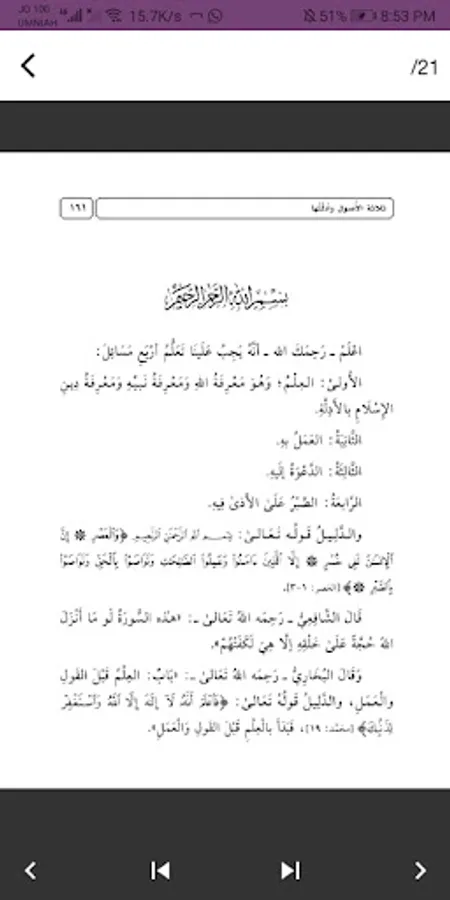 JO 100
UMNIAH
15.7K/s
51%
8:53 PM
/21
ثلاثة الأصول وأدلتها
١٦١
بِسْمِ اللَّهِ الرَّحْمَنِ الرَّحِيمِ
اعْلَمْ ـ رَحِمَكَ الله ـ أَنَّهُ يَجِبُ عَلَيْنَا تَعَلُّمُ أَرْبَعِ مَسَائِلَ:
الأُولَىٰ: العِلْمُ؛ وَهُوَ مَعْرِفَةُ اللهِ وَمَعْرِفَةُ نَبِيِّهِ وَمَعْرِفَةُ دِينِ
الإِسْلَامِ بِالأَدِلَّةِ.
الثَّانِيَةُ: العَمَلُ بِهِ.
الثَّالِثَةُ: الدَّعْوَةُ إِلَيْهِ.
الرَّابِعَةُ: الصَّبْرُ عَلَىٰ الأَذَىٰ فِيهِ.
والدَّلِيلُ قَولُه تَعَالَىٰ: بِسْمِ اللهِ الرَّحْمَنِ الرَّحِيمِ ﴿وَالْعَصْرِ ۞ إِنَّ
الْإِنسَانَ لَفِي خُسْرٍ ۞ إِلَّا الَّذِينَ ءَامَنُوا وَعَمِلُوا الصَّالِحَاتِ وَتَوَاصَوْا بِالْحَقِّ وَتَوَاصَوْا
بِالصَّبْرِ ۞﴾ [العصر: ١-٣].
قَالَ الشَّافِعِيُّ ـ رَحِمَه اللهُ تَعَالَىٰ ـ: «هٰذِه السُّورَةُ لَو مَا أَنْزَلَ
اللهُ حُجَّةً عَلَىٰ خَلْقِهِ إِلَّا هِيَ لَكَفَتْهُمْ».
وَقَالَ البُخَارِيُّ ـ رَحِمَه اللهُ تَعَالَىٰ ـ: «بَابٌ: العِلْمُ قَبْلَ القَولِ
والعَمَلِ، والدَّلِيلُ قَولُهُ تَعَالَىٰ: ﴿فَاعْلَمْ أَنَّهُ لَا إِلَهَ إِلَّا اللَّهُ وَاسْتَغْفِرْ
لِذَنْبِكَ﴾ [محمّد: ١٩]، فَبَدَأَ بِالْعِلْمِ قَبْلَ القَولِ وَالْعَمَلِ».